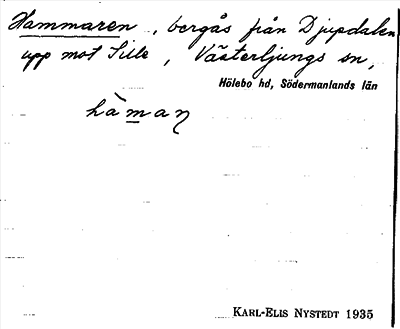 Hammaren, bergås från Djupdalen
upp mot Sille, Västerljungs sn,
Hölebo hd, Södermanlands län
hàmaŋ
KARL-ELIS NYSTEDT 1935